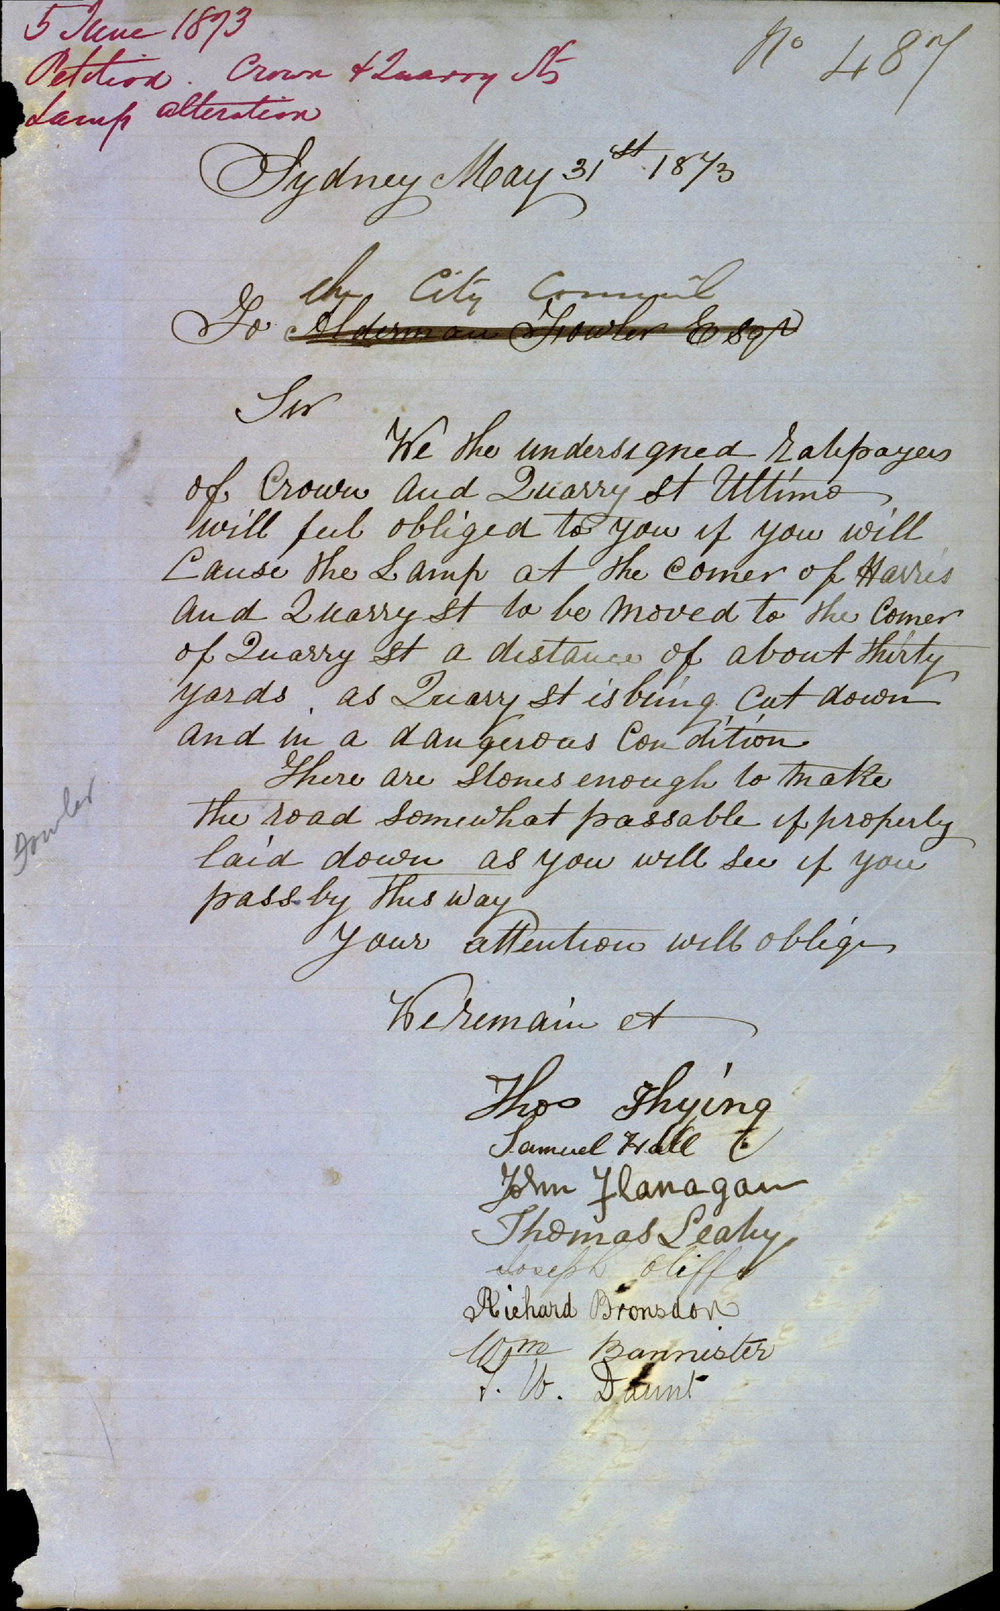 5 June 1873
Petition. Crown & Quarry Sts
Lamp alteration
No 487
Sydney May 31st 1873
the City Council
To Alderman Fowler Esqr
Sir
We the undersigned Ratepayers
of Crown and Quarry St Ultimo
will feel obliged to you if you will
Cause the Lamp at the corner of Harris
and Quarry St to be moved to the Corner
of Quarry St a distance of about thirty
yards, as Quarry St is being Cut down
and in a dangerous Condition
There are stones enough to make
the road somewhat passable if properly
laid down as you will see if you
pass by this way
Fowler
Your attention will oblige
We remain et
Thos Thying
Samuel Hall
John Flanagan
Thomas Leahy
Joseph Oliffe
Richard Bronsdon
Wm Bannister
T. W. Daunt